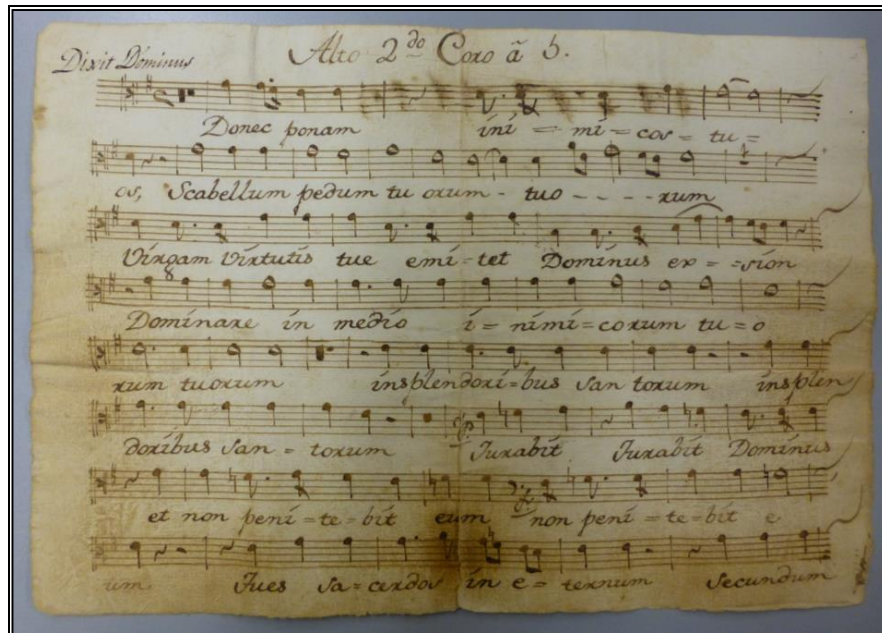 Alto 2do Coro â 5.
Dixit Dominus
Donec ponam ini = mi = cos = tu =
os, Scabellum pedum tu orum - tuo - - - - rum
Virgam Virtutis tue emi = tet Dominus ex = = sion
Dominare in medio i = nimi = corum tu = o
rum tuorum insplendori = bus san torum insplen
doribus san = torum Jurabit Jurabit Dominus
et non peni = te = bit eum non peni = te = bit e
um Tues sa = cerdos in e = ternum secundum